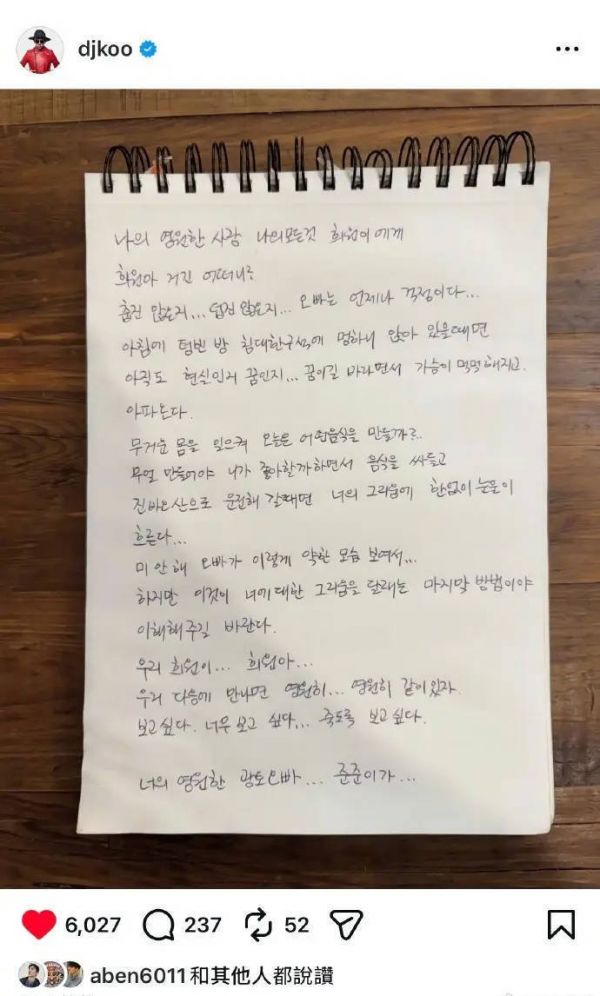 djkoo
나의 영원한 사랑 나의모든것 희원이에게
희원아 거긴 어떠니?
춥진 않은지... 덥진 않은지... 오빠는 언제나 걱정이다...
아침에 텅빈 방 침대한구석에 멍하니 앉아 있을때면
아직도 현실인지 꿈인지... 꿈이길 바라면서 가슴이 먹먹해지고.
아파온다.
무거운 몸을 일으켜 오늘은 어떤음식을 만들까?..
무얼 만들어야 네가 좋아할까하면서 음식을 싸들고
진바오산으로 운전해 갈때면 너의 그리움에 한없이 눈물이
흐른다...
미안해 오빠가 이렇게 약한 모습 보여서...
하지만 이것이 너에대한 그리움을 달래는 마지막 방법이야
이해해주길 바란다.
우리 희원이... 희원아...
우리 다음에 만나면 영원히... 영원히 같이있자.
보고싶다. 너무 보고 싶다... 죽도록 보고싶다.
너의 영원한 광토오빠... 준준이가...
6,027 237 52
aben6011和其他人都說讚